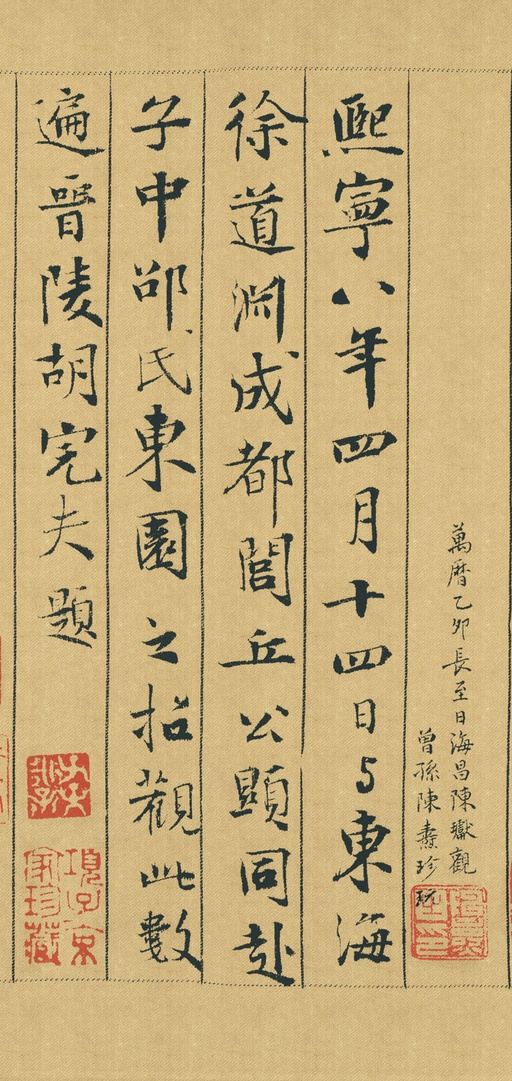 萬曆乙卯長至日海昌陳瓛觀
曾孫陳燾珍玩
熙寧八年四月十四日与東海
徐道渊成都閭丘公顕同赴
子中邵氏東園之招觀此數
遍晉陵胡完夫題
項子京
家珍藏